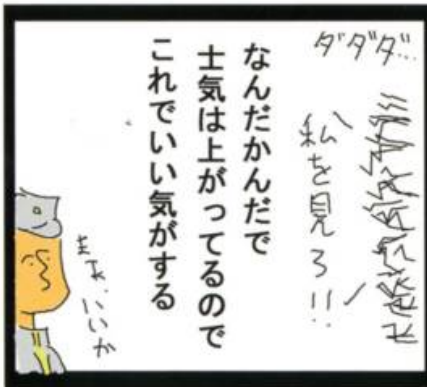 ダダダ…
私を見ろ!!
なんだかんだで
士気は上がってるので
これでいい気がする
まあ、いいか